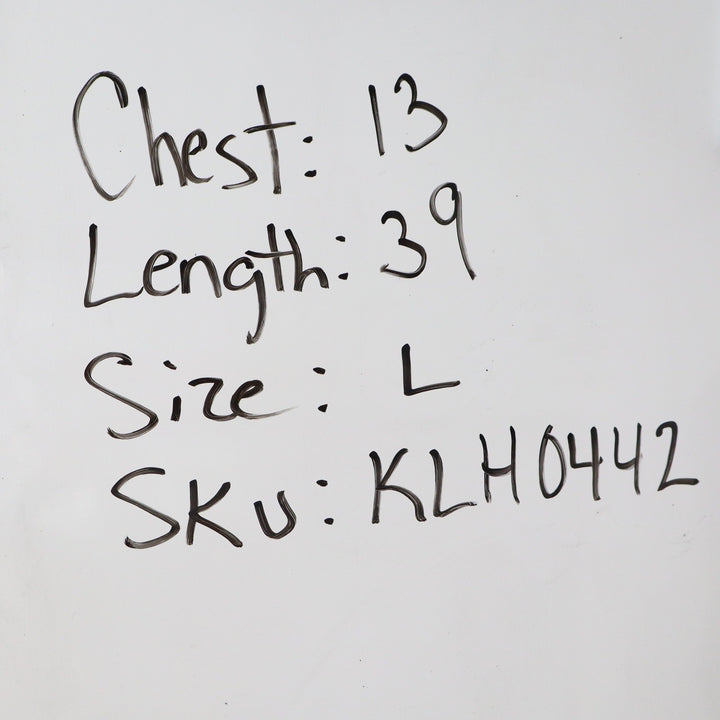 Chest: 13
Length: 39
Size: L
SKU: KLH0442